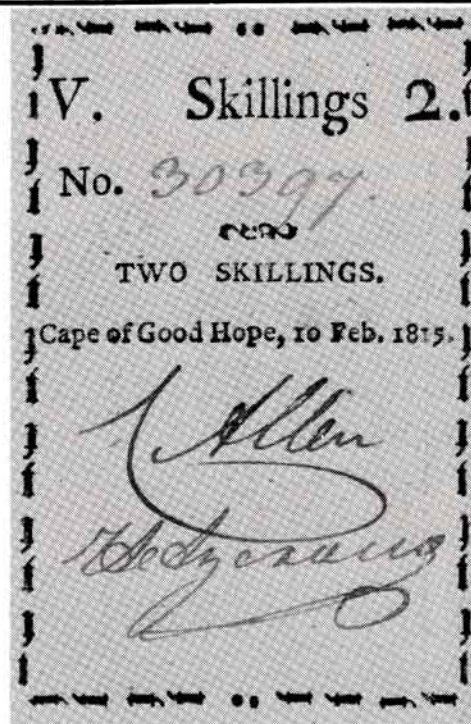 V. Skillings 2.
No. 30397.
TWO SKILLINGS.
Cape of Good Hope, 10 Feb. 1815.
Allen